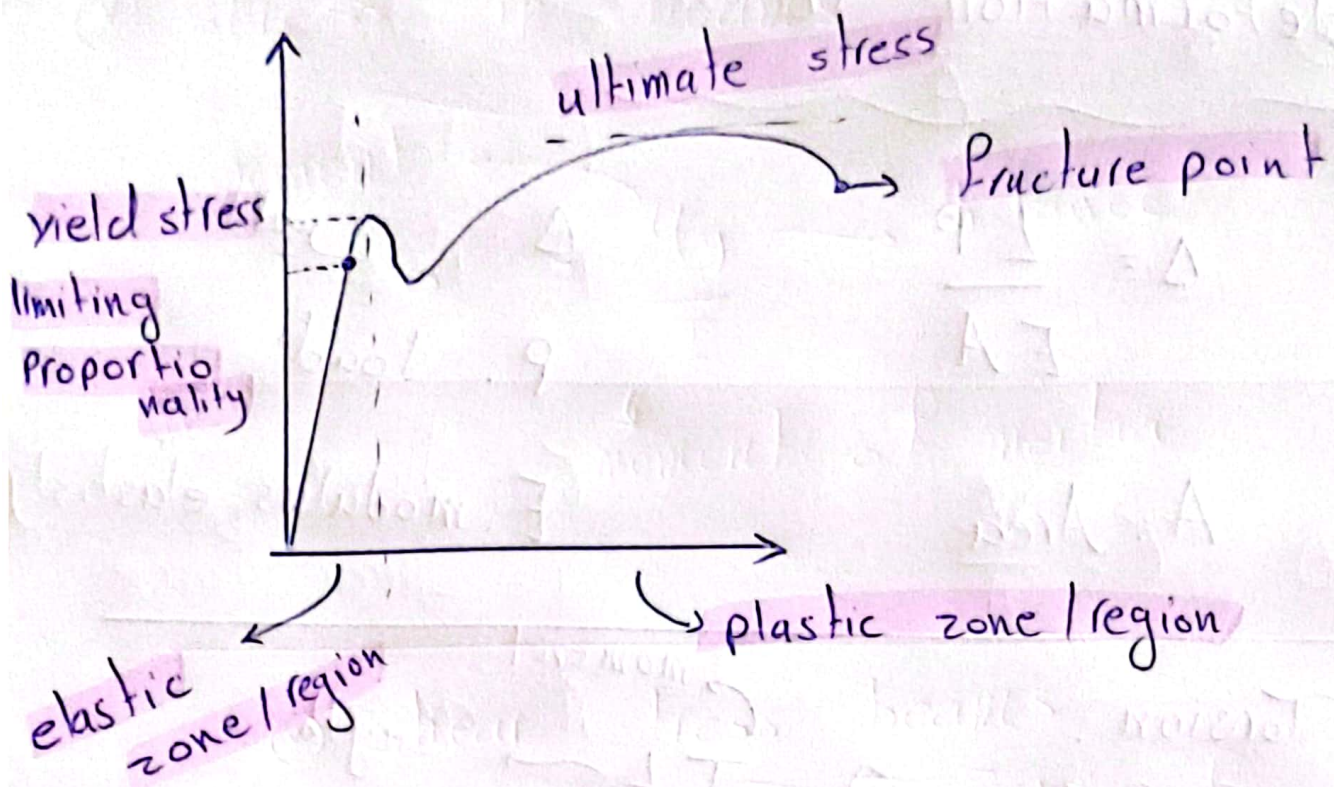 ultimate stress
fructure point
yield stress
limiting
proportio
nality
plastic zone/region
elastic
zone/region